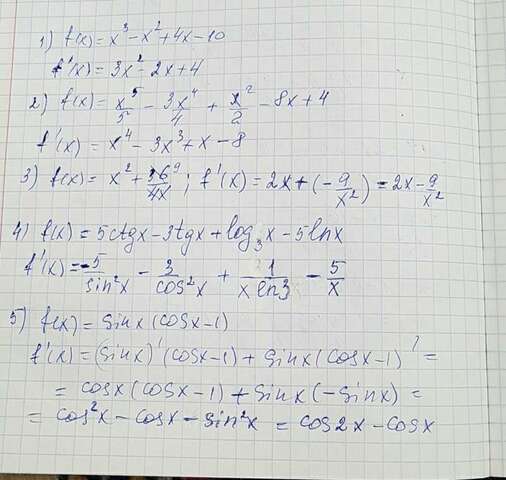 1) f(x) = x³ - x² + 4x - 10
f'(x) = 3x² - 2x + 4
2) f(x) = x⁵/5 - 3x⁴/4 + x²/2 - 8x + 4
f'(x) = x⁴ - 3x³ + x - 8
3) f(x) = x² + 36⁹/4x ; f'(x) = 2x + (-9/x²) = 2x - 9/x²
4) f(x) = 5ctgx - 3tgx + log₃x - 5lnx
f'(x) = -5/sin²x - 3/cos²x + 1/x ln3 - 5/x
5) f(x) = sinx (cosx - 1)
f'(x) = (sinx)' (cosx - 1) + sinx (cosx - 1)' =
= cosx (cosx - 1) + sinx (-sinx) =
= cos²x - cosx - sin²x = cos2x - cosx